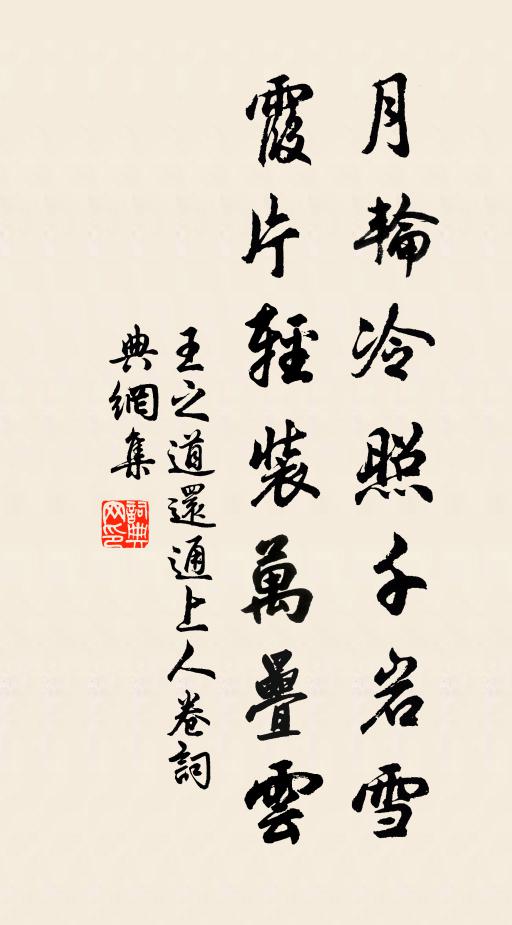 月輪冷照千岩雪
霞片輕裝萬疊雲
王之道還通上人卷詞
典網集
詞典网印